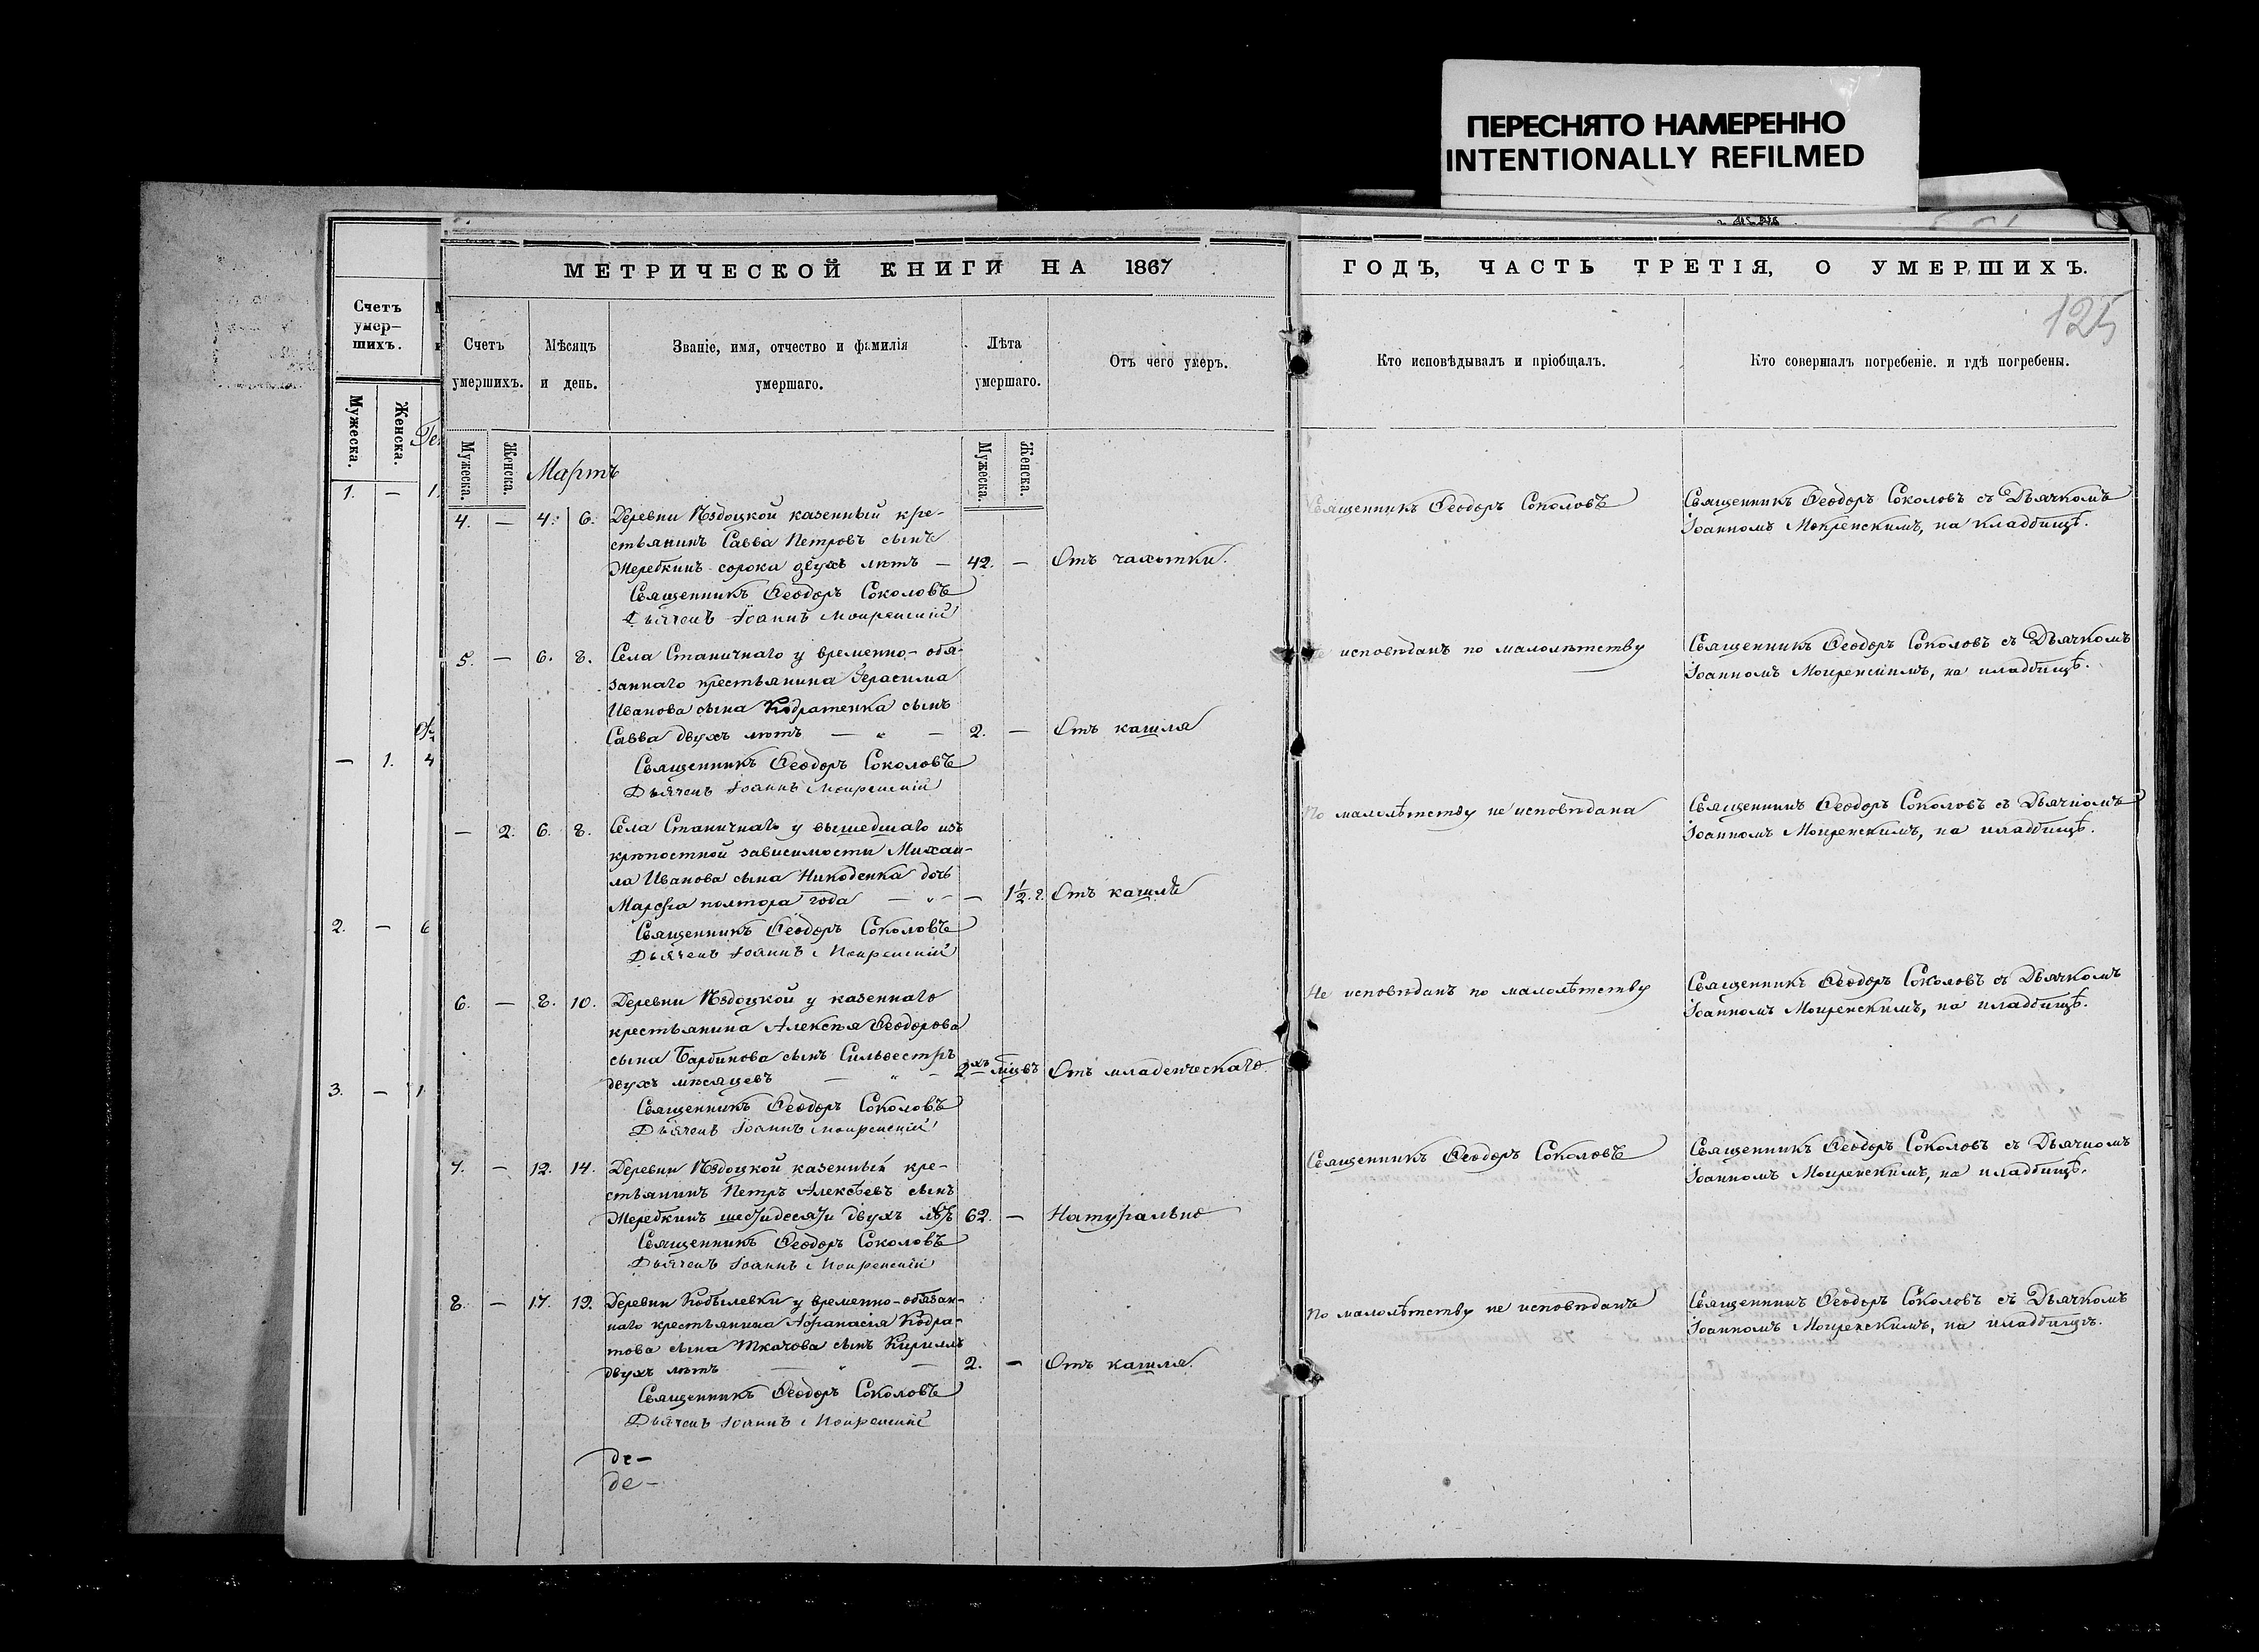 ПЕРЕСНЯТО НАМЕРЕННО
INTENTIONALLY REFILMED
МЕТРИЧЕСКОЙ КНИГИ НА 1867
ГОДЪ, ЧАСТЬ ТРЕТІЯ, О УМЕРШИХЪ.
125
Счетъ
умер-
шихъ.
Мужеска.
Женска.
1. — 1
— 1. 4
2. — 6
3. — 1
Счетъ
умершихъ.
Мѣсяцъ
и день.
Званіе, имя, отчество и фамилія
умершаго.
Лѣта
умершаго.
Отъ чего умеръ.
Кто исповѣдывалъ и пріобщалъ.
Кто совершалъ погребеніе. и гдѣ погребены.
Мужеска.
Женска.
Мартъ
Мужеска.
Женска.
4. — 4. 6. Деревни Ѣздоцкой казенный кре-
стьянинъ Савва Петровъ сынъ
Жеребкинъ сорока двухъ лѣтъ — 42. — Отъ чахотки.
Священникъ Ѳеодоръ Соколовъ
Дьячекъ Іоаннъ Мокренскій
Священникъ Ѳеодоръ Соколовъ
Священникъ Ѳеодоръ Соколовъ съ Дьячкомъ
Іоанномъ Мокренскимъ, на кладбищѣ.
5. — 6. 8. Села Станичнаго у временно-обя-
заннаго крестьянина Герасима
Иванова сына Кодратенка сынъ
Савва двухъ лѣтъ — " — 2. — Отъ кашля
Священникъ Ѳеодоръ Соколовъ
Дьячекъ Іоаннъ Мокренскій
исповѣданъ по малолѣтству
Священникъ Ѳеодоръ Соколовъ съ Дьячкомъ
Іоанномъ Мокренскимъ, на кладбищѣ.
— 2. 6. 8. Села Станичнаго у вышедшаго изъ
крѣпостной зависимости Михаи-
ла Иванова сына Никоденка дочь
Марѳа полтора года — " — — 1½. г. Отъ кашля
Священникъ Ѳеодоръ Соколовъ
Дьячекъ Іоаннъ Мокренскій
По малолѣтству не исповѣдана
Священникъ Ѳеодоръ Соколовъ съ Дьячкомъ
Іоанномъ Мокренскимъ, на кладбищѣ.
6. — 8. 10. Деревни Ѣздоцкой у казеннаго
крестьянина Алексѣя Ѳеодорова
сына Барбинова сынъ Сильвестръ
двухъ мѣсяцевъ — " — 2хъ мцвъ Отъ младенческаго.
Священникъ Ѳеодоръ Соколовъ
Дьячекъ Іоаннъ Мокренскій
Не исповѣданъ по малолѣтству
Священникъ Ѳеодоръ Соколовъ съ Дьячкомъ
Іоанномъ Мокренскимъ, на кладбищѣ.
7. — 12. 14. Деревни Ѣздоцкой казенный кре-
стьянинъ Петръ Алексѣевъ сынъ
Жеребкинъ шестидесяти двухъ лѣтъ 62. — Натурально
Священникъ Ѳеодоръ Соколовъ
Дьячекъ Іоаннъ Мокренскій
Священникъ Ѳеодоръ Соколовъ
Священникъ Ѳеодоръ Соколовъ съ Дьячкомъ
Іоанномъ Мокренскимъ, на кладбищѣ.
8. — 17. 19. Деревни Кобылевки у временно-обязан-
наго крестьянина Аѳанасія Кодра-
това сына Ткачова сынъ Кириллъ
двухъ лѣтъ — " — 2. — Отъ кашля.
Священникъ Ѳеодоръ Соколовъ
Дьячекъ Іоаннъ Мокренскій
По малолѣтству не исповѣданъ
Священникъ Ѳеодоръ Соколовъ съ Дьячкомъ
Іоанномъ Мокренскимъ, на кладбищѣ.
де—
де—